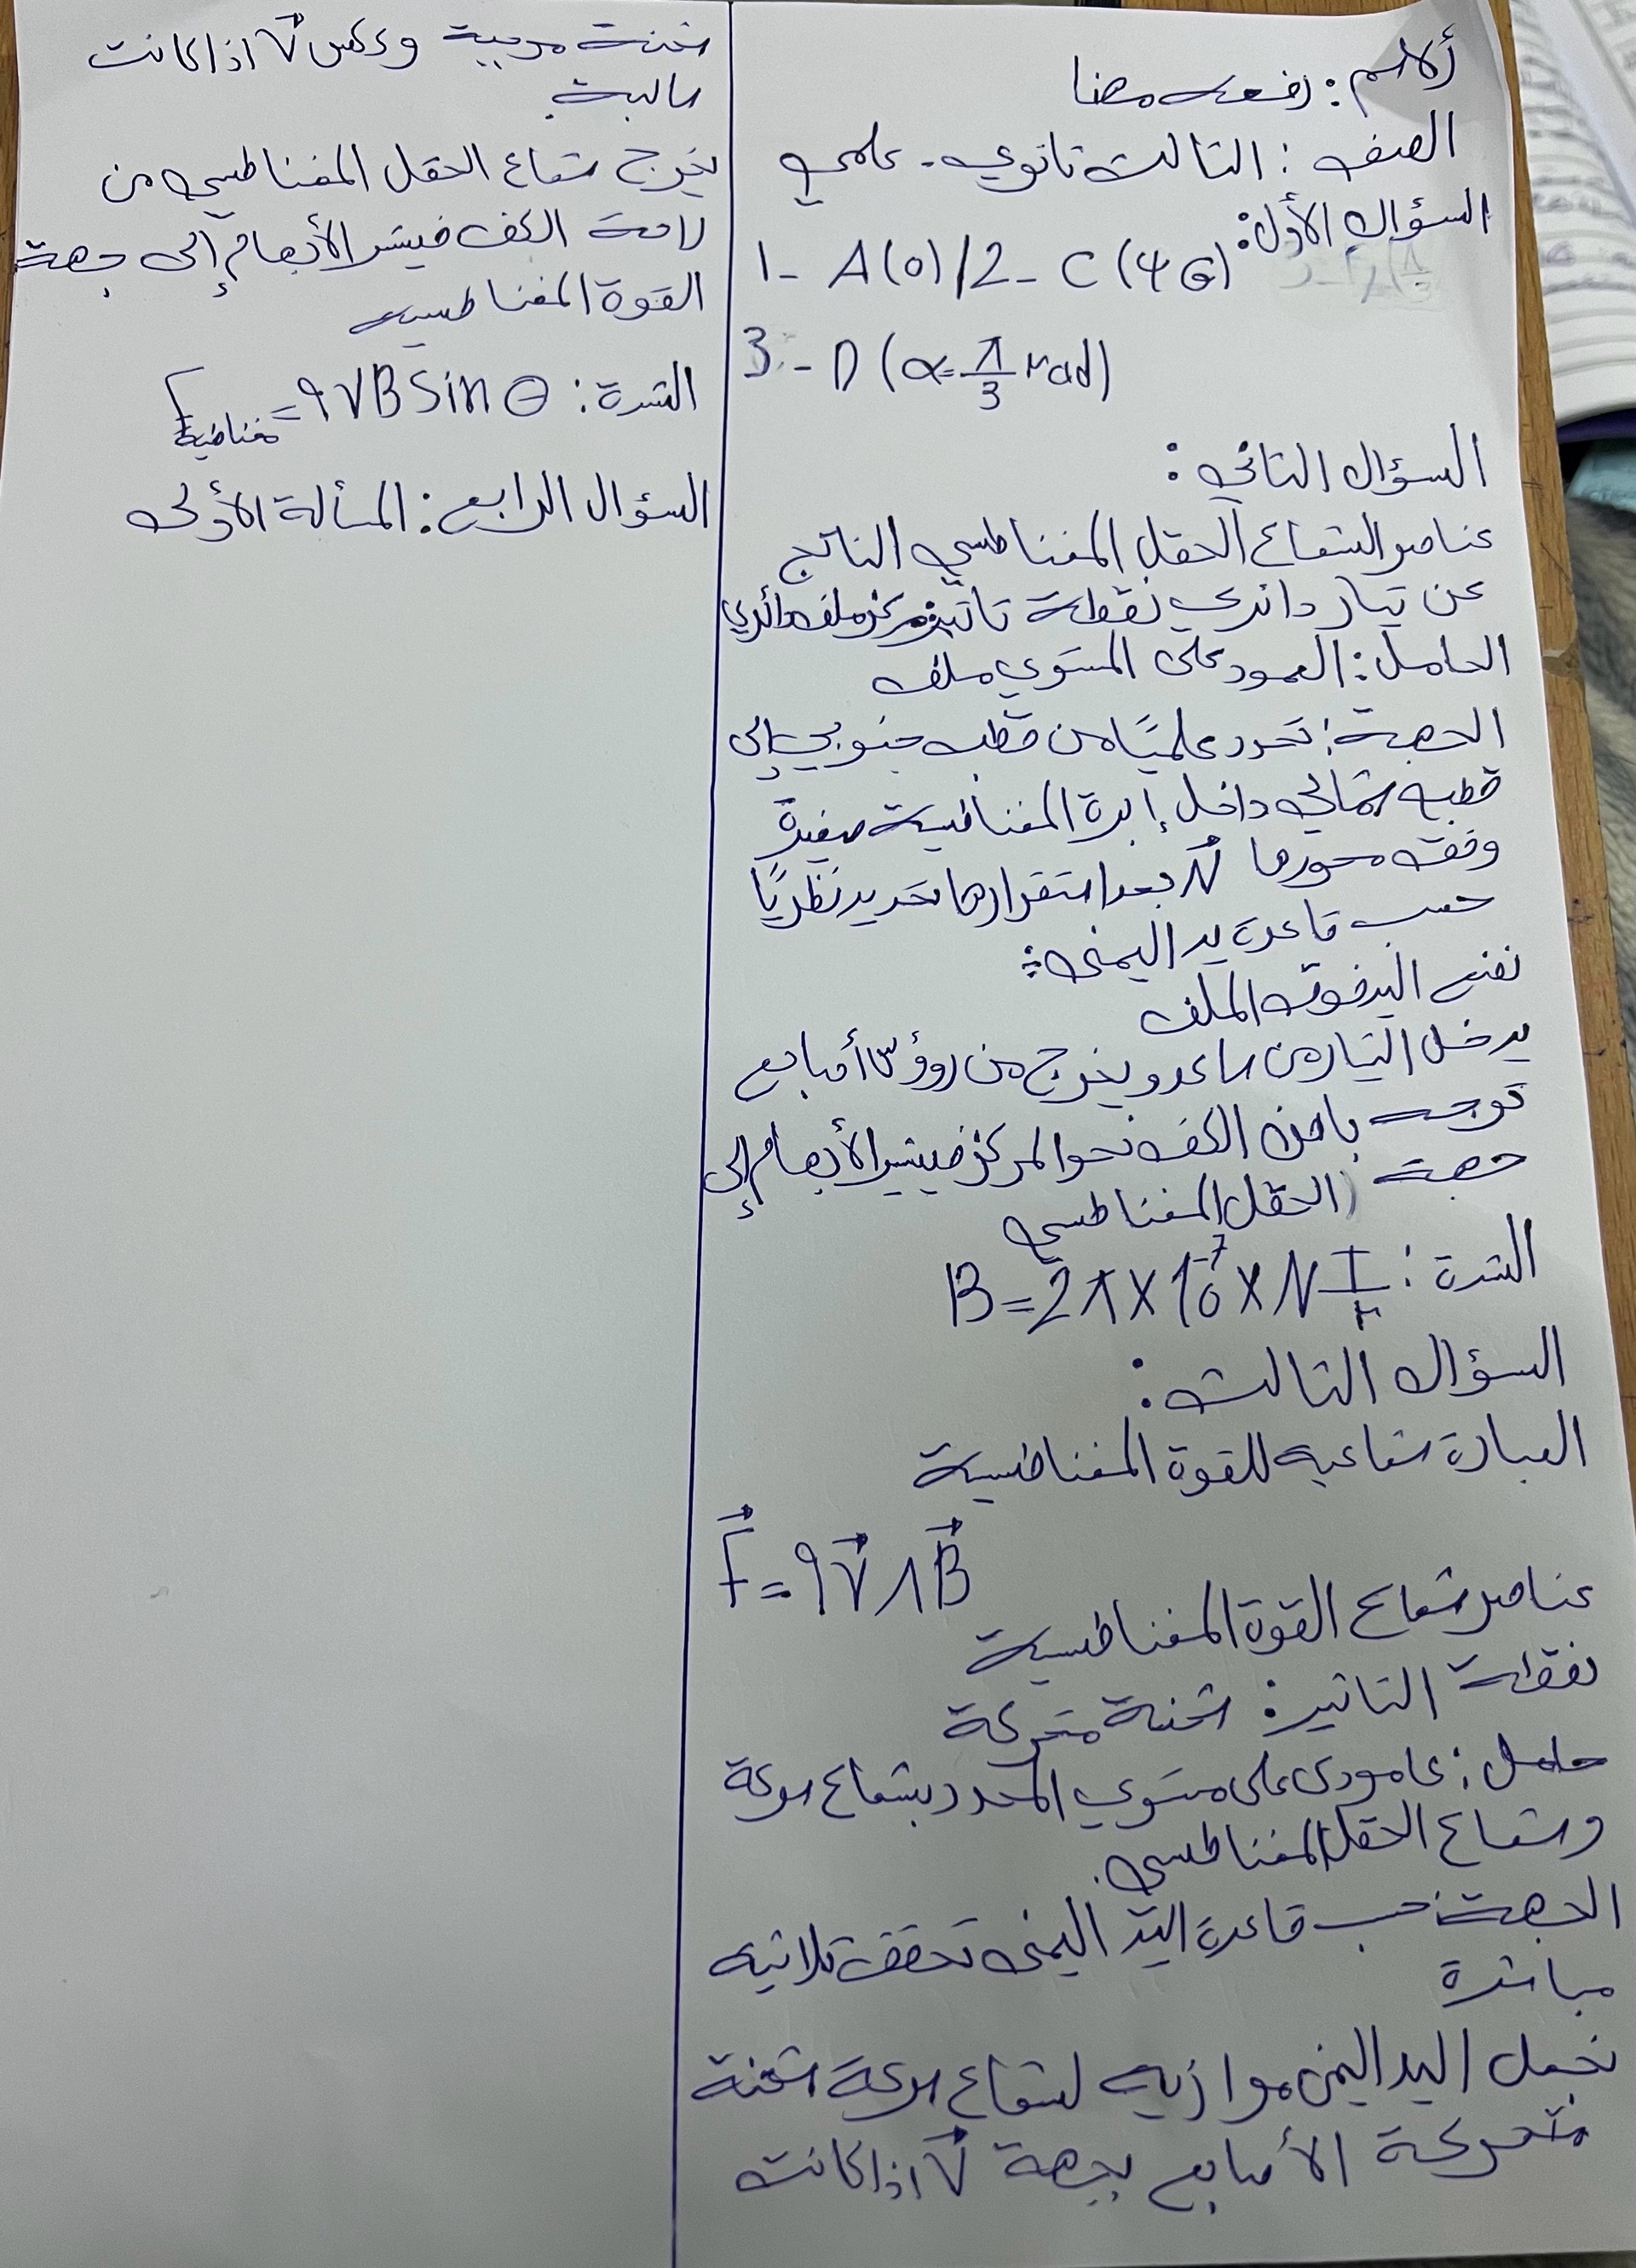 الاسم: رفعت مهنا
الصف: الثالث ثانوي - علمي
السؤال الأول:
1- A(0)/2- C(4G)
3- D (α=π/3 rad)
السؤال الثاني:
عناصر الشعاع الحقل المغناطيسي الناتج
عن تيار دائري نقطة تاثير: مركز ملف دائري
الحامل: العمود على المستوي ملف
الجهة: تحدد عمليًا من قطب جنوبي إلى
قطبه شمالي داخل إبرة المغناطيسية صغيرة
وفقه محورها بعد استقرارها تحديد نظريًا
حسب قاعدة يد اليمنى:
نضع اليد فوق الملف
يدخل التيار من ساعد و يخرج من رؤوس أصابع
توجه باطن الكف نحو المركز فيشير الأبهام إلى
جهة الحقل المغناطيسي
الشدة: B=2π×10⁻⁷×N I/r
السؤال الثالث:
العبارة شاعيه للقوة المغناطيسية
F⃗=qv⃗∧B⃗
عناصر شعاع القوة المغناطيسية
نقطة التاثير: شحنة متحركة
حامل: عامودي على مستوي المحدد بشعاع سرعة
وشعاع الحقل المغناطيسي.
الجهة: حسب قاعدة اليد اليمنى تحقق ثلاثيه
مباشرة
نجعل اليد اليمنى موازيه لشعاع سرعة شحنة
متحركة الأصابع بجهة v⃗ اذا كانت
شحنة موجبة وعكس v⃗ اذا كانت
سالبة.
يخرج شعاع الحقل المغناطيسي من
راحة الكف فيشير الأبهام إلى جهة
القوة المغناطيسيه
الشدة: F مغناطيسية = qvB sin θ
السؤال الرابع: المسألة الأولى